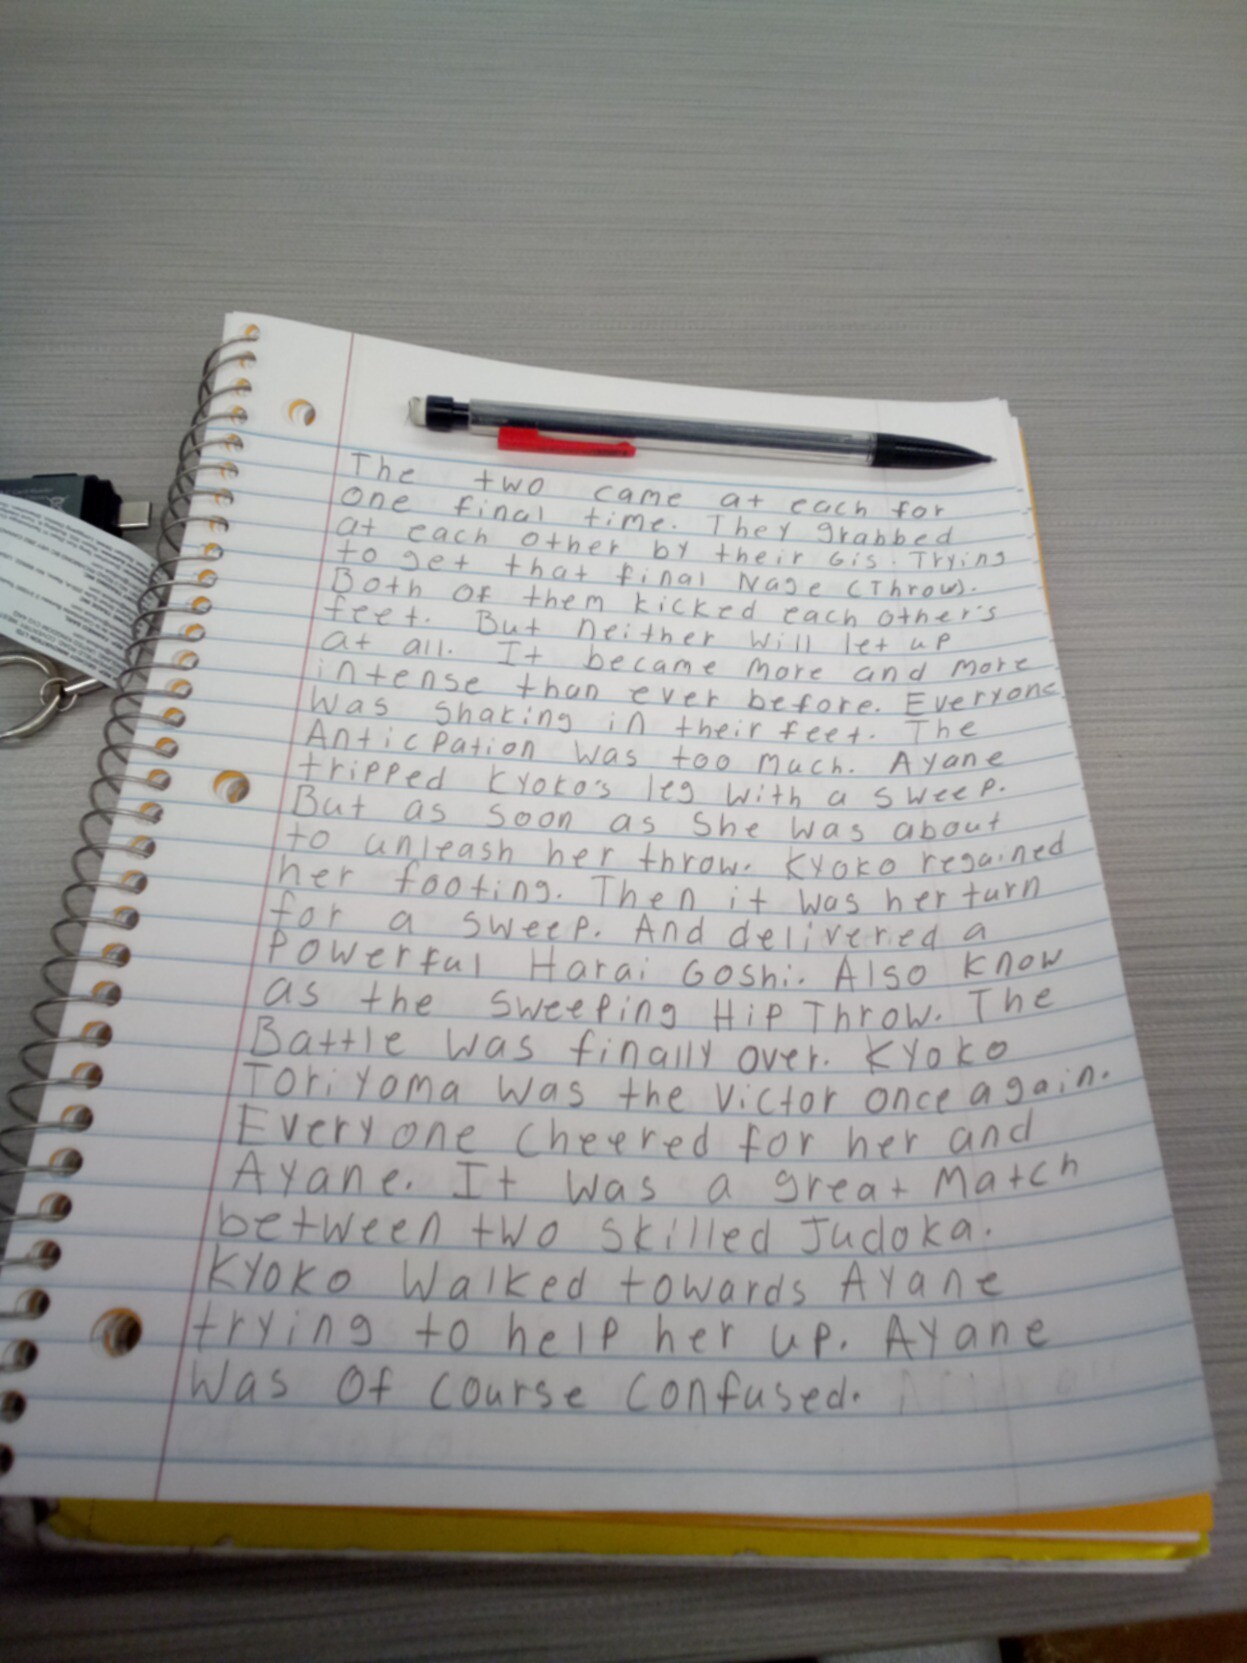 The two came at each for
one final time. They grabbed
at each other by their Gis. Trying
to get that final Nage (Throw).
Both of them kicked each other's
feet. But neither will let up
at all. It became more and more
intense than ever before. Everyone
was shaking in their feet. The
Anticpation was too much. Ayane
tripped Kyoko's leg with a sweep.
But as soon as she was about
to unleash her throw. Kyoko regained
her footing. Then it was her turn
for a sweep. And delivered a
powerful Harai Goshi. Also know
as the sweeping Hip Throw. The
Battle was finally over. Kyoko
Toriyoma was the victor once again.
Everyone cheered for her and
Ayane. It was a great match
between two skilled Judoka.
Kyoko walked towards Ayane
trying to help her up. Ayane
was of course confused.